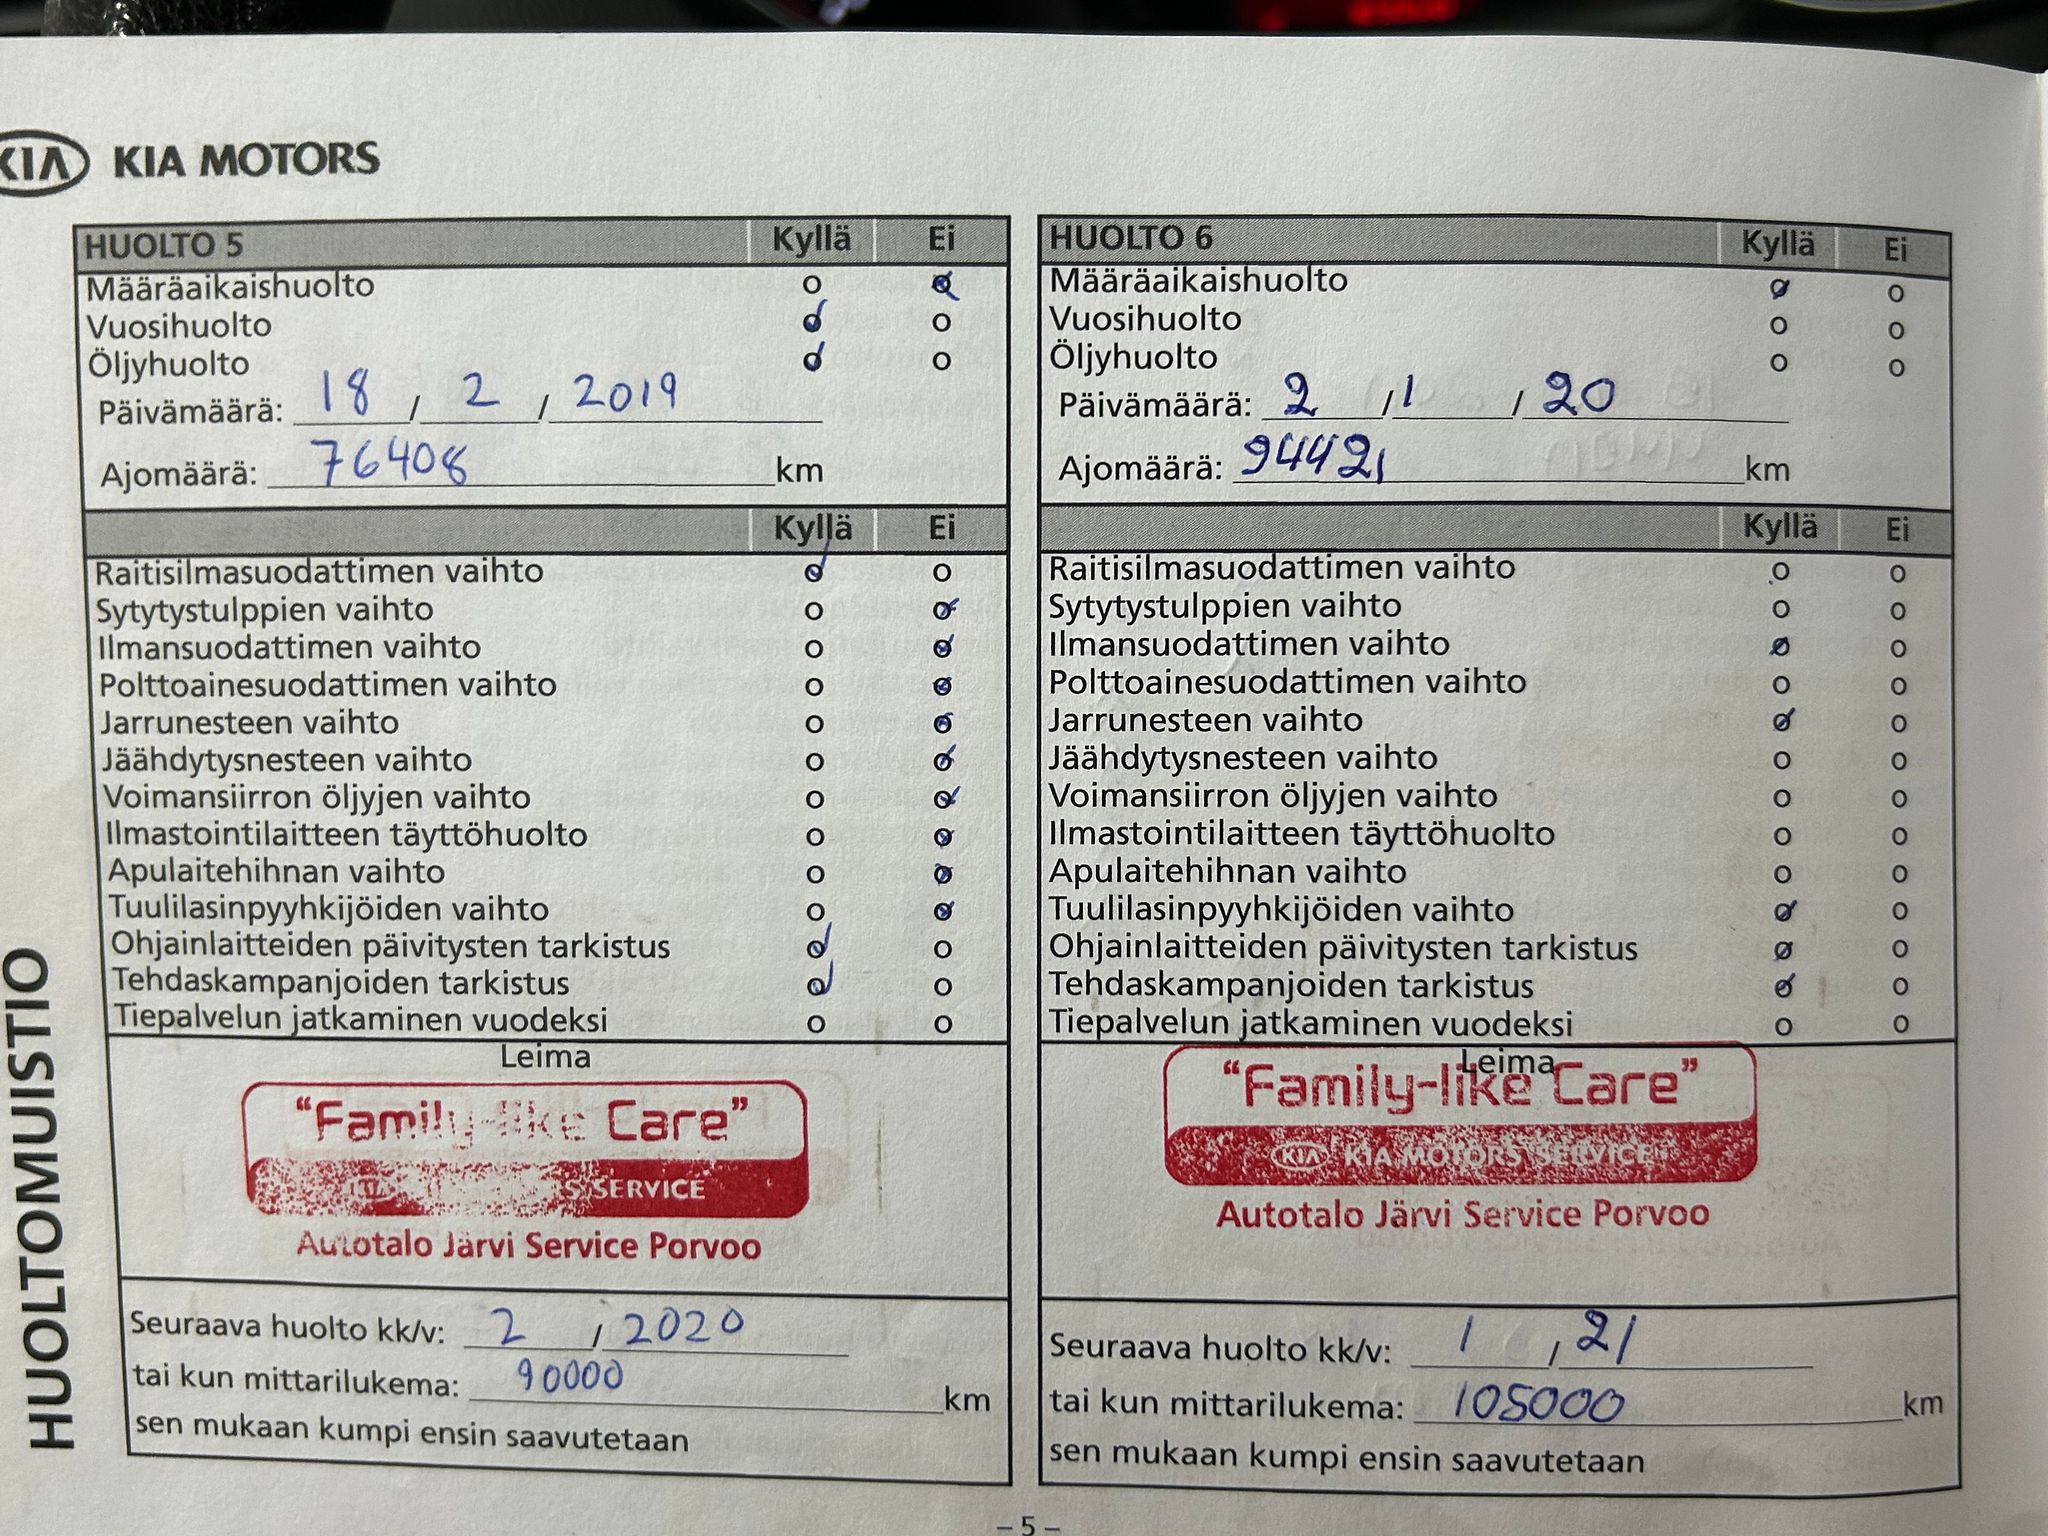 KIA KIA MOTORS
HUOLTOMUISTIO
HUOLTO 5 Kyllä Ei
Määräaikaishuolto o o
Vuosihuolto o o
Öljyhuolto o o
Päivämäärä: 18 / 2 / 2019
Ajomäärä: 76408 km
Kyllä Ei
Raitisilmasuodattimen vaihto o o
Sytytystulppien vaihto o o
Ilmansuodattimen vaihto o o
Polttoainesuodattimen vaihto o o
Jarrunesteen vaihto o o
Jäähdytysnesteen vaihto o o
Voimansiirron öljyjen vaihto o o
Ilmastointilaitteen täyttöhuolto o o
Apulaitehihnan vaihto o o
Tuulilasinpyyhkijöiden vaihto o o
Ohjainlaitteiden päivitysten tarkistus o o
Tehdaskampanjoiden tarkistus o o
Tiepalvelun jatkaminen vuodeksi o o
Leima
"Family-like Care"
SERVICE
Autotalo Järvi Service Porvoo
Seuraava huolto kk/v: 2 / 2020
tai kun mittarilukema: 90000 km
sen mukaan kumpi ensin saavutetaan
HUOLTO 6 Kyllä Ei
Määräaikaishuolto o o
Vuosihuolto o o
Öljyhuolto o o
Päivämäärä: 2 / 1 / 20
Ajomäärä: 94421 km
Kyllä Ei
Raitisilmasuodattimen vaihto o o
Sytytystulppien vaihto o o
Ilmansuodattimen vaihto o o
Polttoainesuodattimen vaihto o o
Jarrunesteen vaihto o o
Jäähdytysnesteen vaihto o o
Voimansiirron öljyjen vaihto o o
Ilmastointilaitteen täyttöhuolto o o
Apulaitehihnan vaihto o o
Tuulilasinpyyhkijöiden vaihto o o
Ohjainlaitteiden päivitysten tarkistus o o
Tehdaskampanjoiden tarkistus o o
Tiepalvelun jatkaminen vuodeksi o o
Leima
"Family-like Care"
KIA KIA MOTORS SERVICE
Autotalo Järvi Service Porvoo
Seuraava huolto kk/v: 1 / 21
tai kun mittarilukema: 105000 km
sen mukaan kumpi ensin saavutetaan
– 5 –